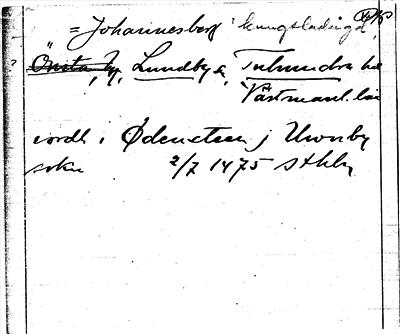 = Johannesberg kungsladugd.
Önsta, by, Lundby s, Tuhundra hd
Västmanl. län
iordh i Ødenctem j Unonby
sokn 2/7 1475 Sthlm